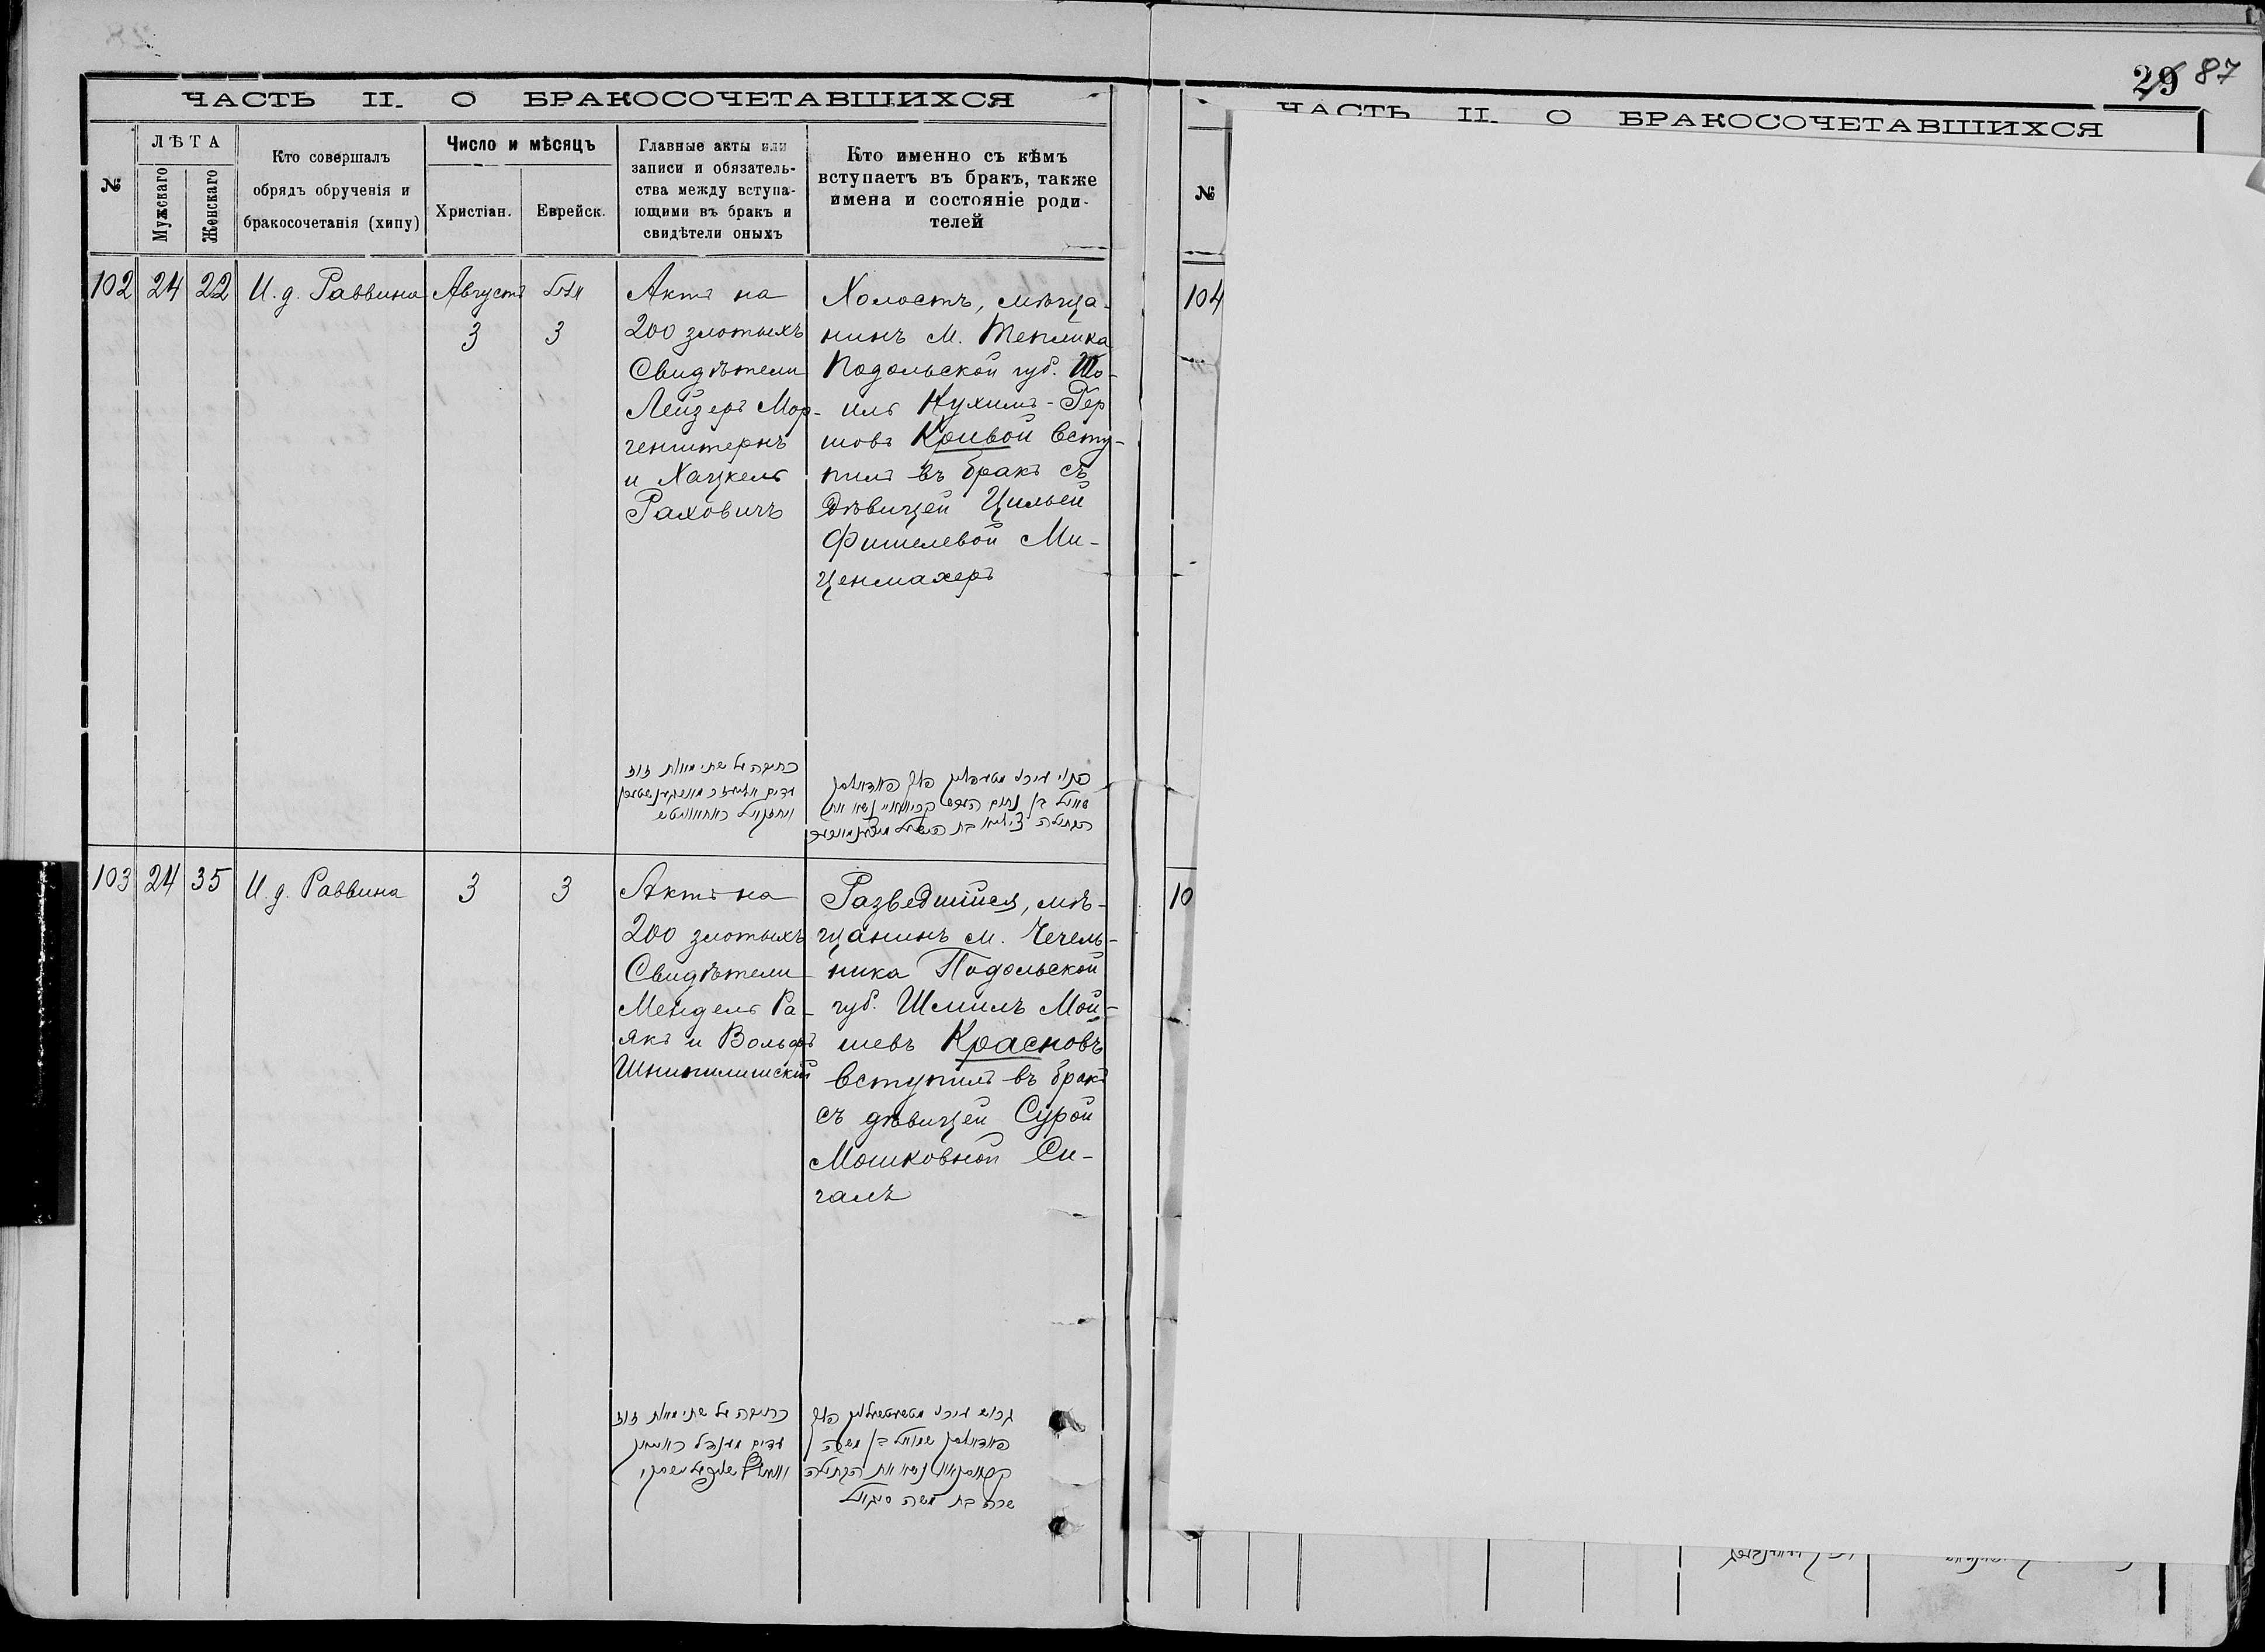 29 87
ЧАСТЬ II. О БРАКОСОЧЕТАВШИХСЯ
№
ЛѢТА
Мужскаго
Женскаго
Кто совершалъ
обрядъ обрученія и
бракосочетанія (хипу)
Число и мѣсяцъ
Христіан.
Еврейск.
Главные акты или
записи и обязатель-
ства между вступа-
ющими въ бракъ и
свидѣтели оныхъ
Кто именно съ кѣмъ
вступаетъ въ бракъ, также
имена и состояніе роди-
телей
102
24
22
И. д. Раввина
Августъ
3
3
Актъ на
200 злотыхъ
Свидѣтели
Лейзеръ Мор-
генштернъ
и Хацкель
Раховичъ
Холостъ, мѣща-
нинъ м. Теплика
Подольской губ. Шо-
илъ Нухимъ-Гер
шовъ Кривой всту-
пилъ въ бракъ съ
дѣвицей Цильей
Фишелевой Ми-
ценмахеръ
כתובה על שתי מאות זוז
עדים
103
24
35
И. д. Раввина
3
3
Актъ на
200 злотыхъ
Свидѣтели
Мендель Ра-
якъ и Вольфъ
Шнипилишскій
Разведшійся, мѣ-
щанинъ м. Чечель-
ника Подольской
губ. Шмилъ Мой-
шевъ Красновъ
вступилъ въ бракъ
съ дѣвицей Сурой
Мошковной Си-
галъ
כתובה על שתי מאות זוז
עדים מענדל
גרוש
שמואל בן משה
נשא את הבתולה
שרה בת משה סיגאל
ЧАСТЬ II. О БРАКОСОЧЕТАВШИХСЯ
№
104
10